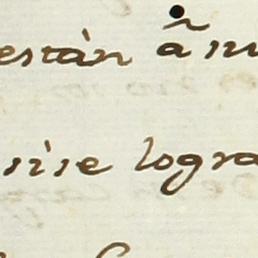 están ã
sise logra